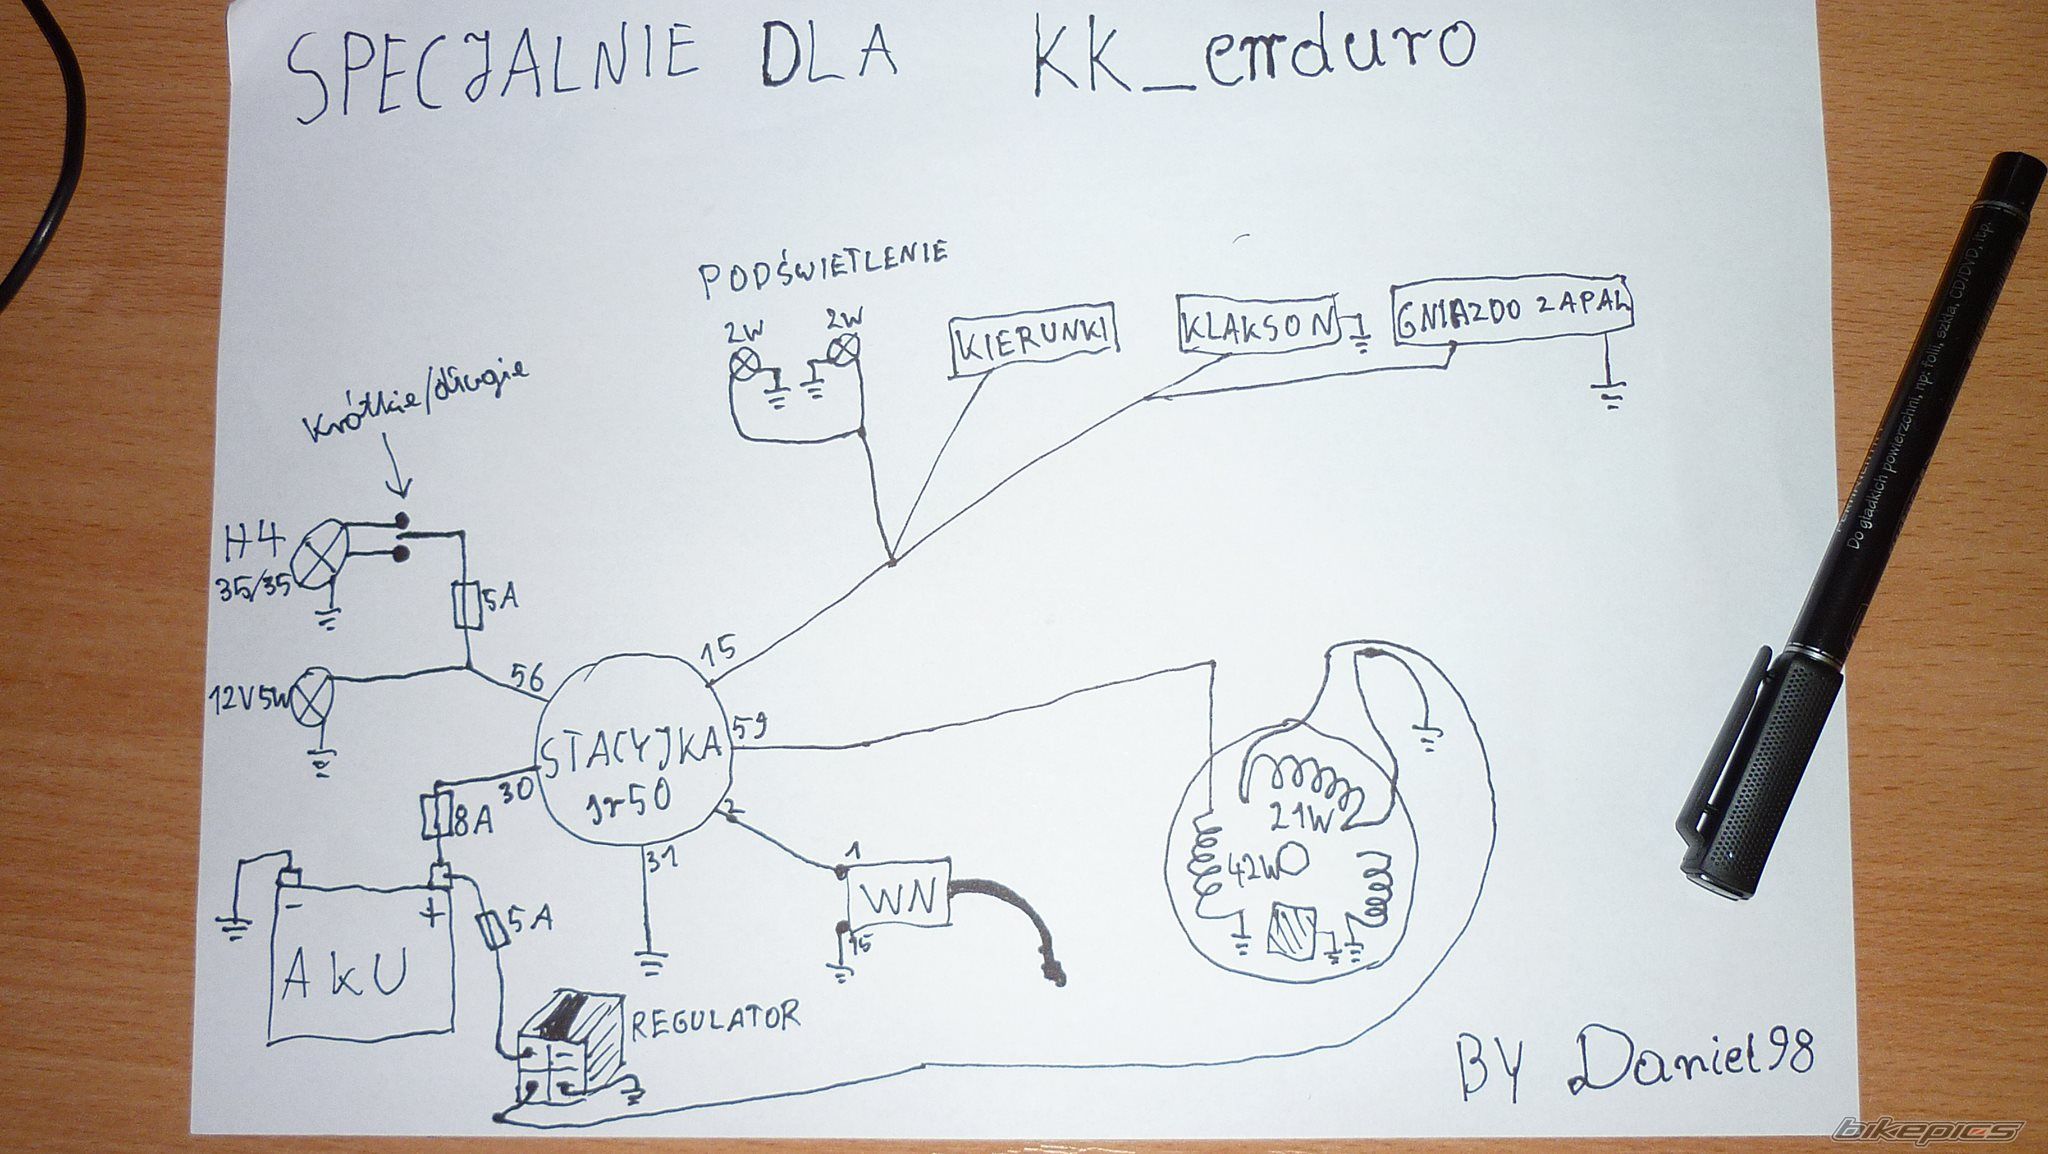 SPECJALNIE DLA KK_enduro
PODŚWIETLENIE
2W
2W
KIERUNKI
KLAKSON
GNIAZDO ZAPAL
Krótkie/długie
H4
35/35
5A
12V5W
56
15
59
STACYJKA
sr50
30
2
31
8A
-
+
AKU
5A
1
WN
15
REGULATOR
21W
42W
BY Daniel98
Do gładkich powierzchni, np: folii, szkła, CD/DVD, itp.
bikepics